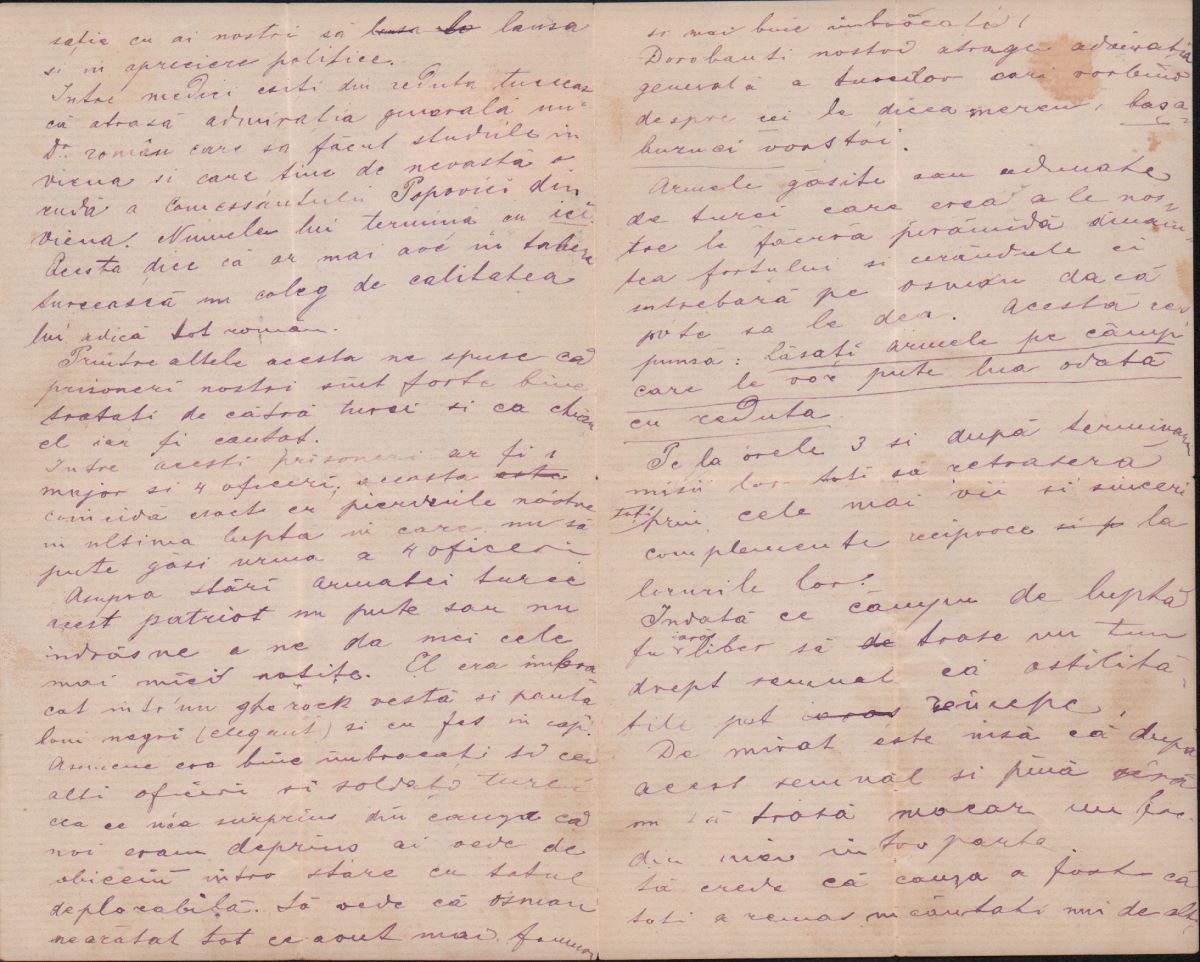 sație cu ai nostri să lansa la lansa
si in apreciere politice.
Intre medici esiti din reduta turceas
că atrasă admiratia generală un
Dr. român care sa făcut studiile in
viena si care tine de nevastă o
rudă a Comessántului Popovici din
viena. Numele lui termină cu ici.
Acesta dice că ar mai ave in tabera
turcească un coleg de calitatea
lui adică tot român.
Printre altele acesta ne spuse că
prisoneri nostri sűnt forte bine
tratati de cătră turci si ca chiar
el iar fi cautat.
Intre acesti prisoneri ar fi 1
major si 4 oficeri; aceasta este
coincidă esact cu pierderile nóstre
in ultima luptă in care nu să
pute găsi urma a 4 oficeri
Asupra stări armatei turce
acest patriot nu pute sau nu
indrăsne a ne da mei cele
mai mici notite. El era imbra
cat intr'un ghérock vestă si panta
loni negri (elegant) si cu fes in cap.
Asemene era bine imbracati si cei
alti oficeri si soldati turci
cea ce nea surprins din cauza că
noi eram deprins ai vede de
obiceiŭ intro stare cu totul
deplorabilă. Să vede că osman
nearătat tot ce avut mai frumos
si mai bine imbrăcați!
Dorobanti nostri atrage admirația
generală a turcilor cari vorbind
despre ei le dicea mereu, başa-
buruci voostói.
Armele găsite sau adunate
de turci care erea a le nos-
tre le făcură pirámidă ănain-
tea fortului si cerăndule ei
intrebară pe osman dacă
pote sa le dea. Acesta res
punsă: lăsați armele pe cămp
care le vor pute lua odată
cu reduta
Pe la órele 3 si după terminarea
misii lor toti sa retraseră
prin cele mai vii si sinceri
complemente reciproce si p la
locurile lor.
Indată ce cămpu de luptă
fu iaras liber să de trase un tun
drept semnal că ostilită-
tile pot iaras reincepe,
De mirat este insă că după
acest semnal si pină séra
nu să trasă macar un foc.
din niciu intro parte
Să crede că cauza a fost că
toti a remas incăntati uni de alti